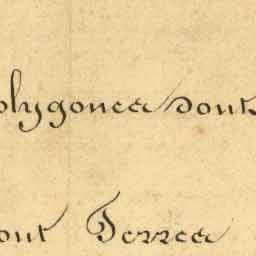 olygones dont
ont Terres